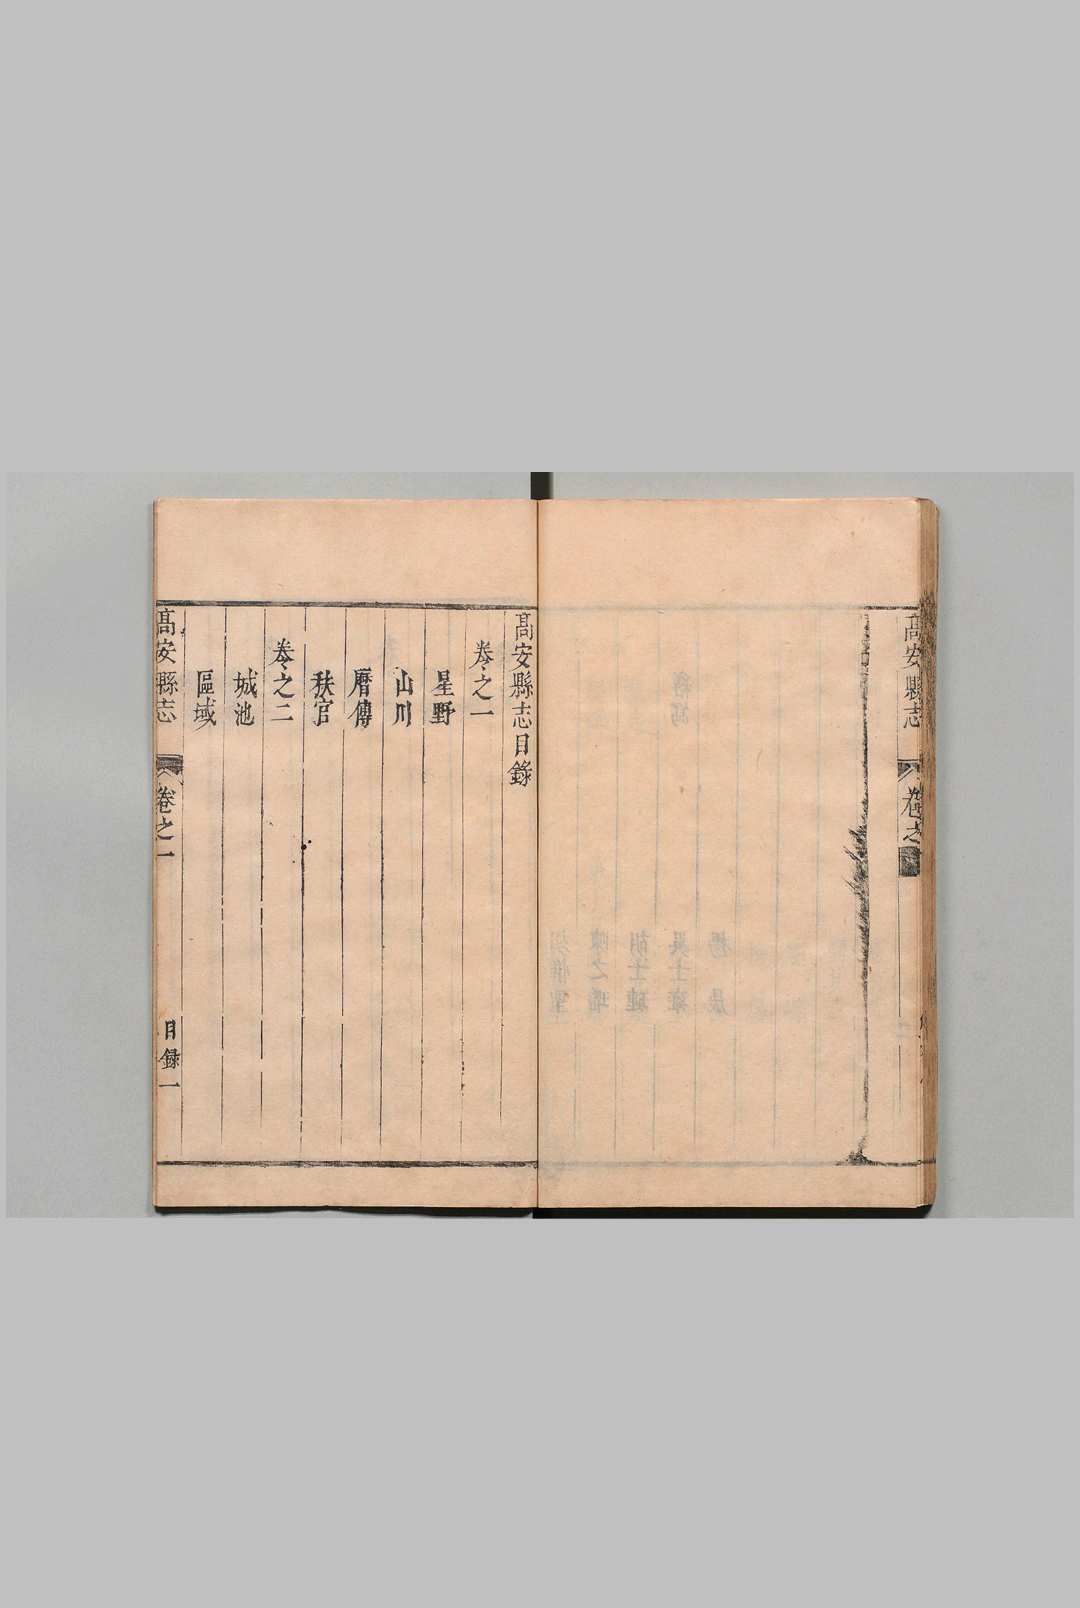 高安縣志
卷之
高安縣志目錄
卷之一
星野
山川
曆傳
秩官
卷之二
城池
區域
高安縣志
卷之一
目錄一